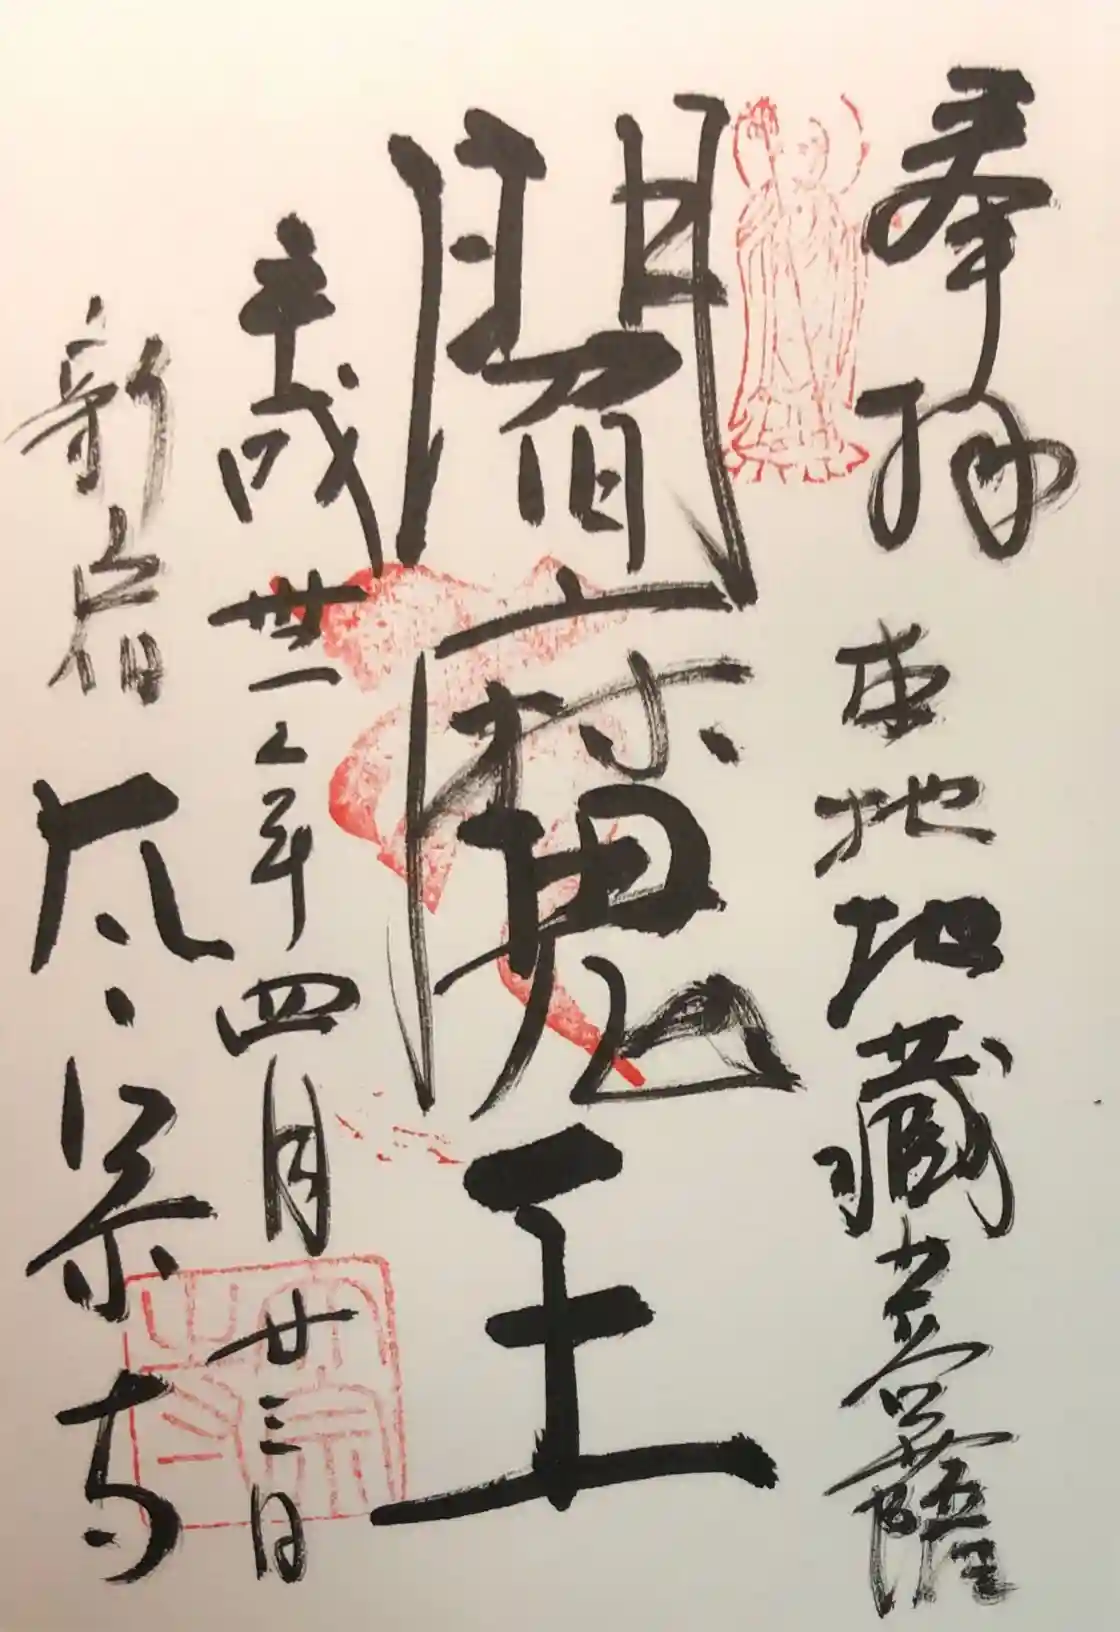 奉拝 本地地蔵菩薩
閻魔王
平成卅一年四月廿三日
新宿 太宗寺